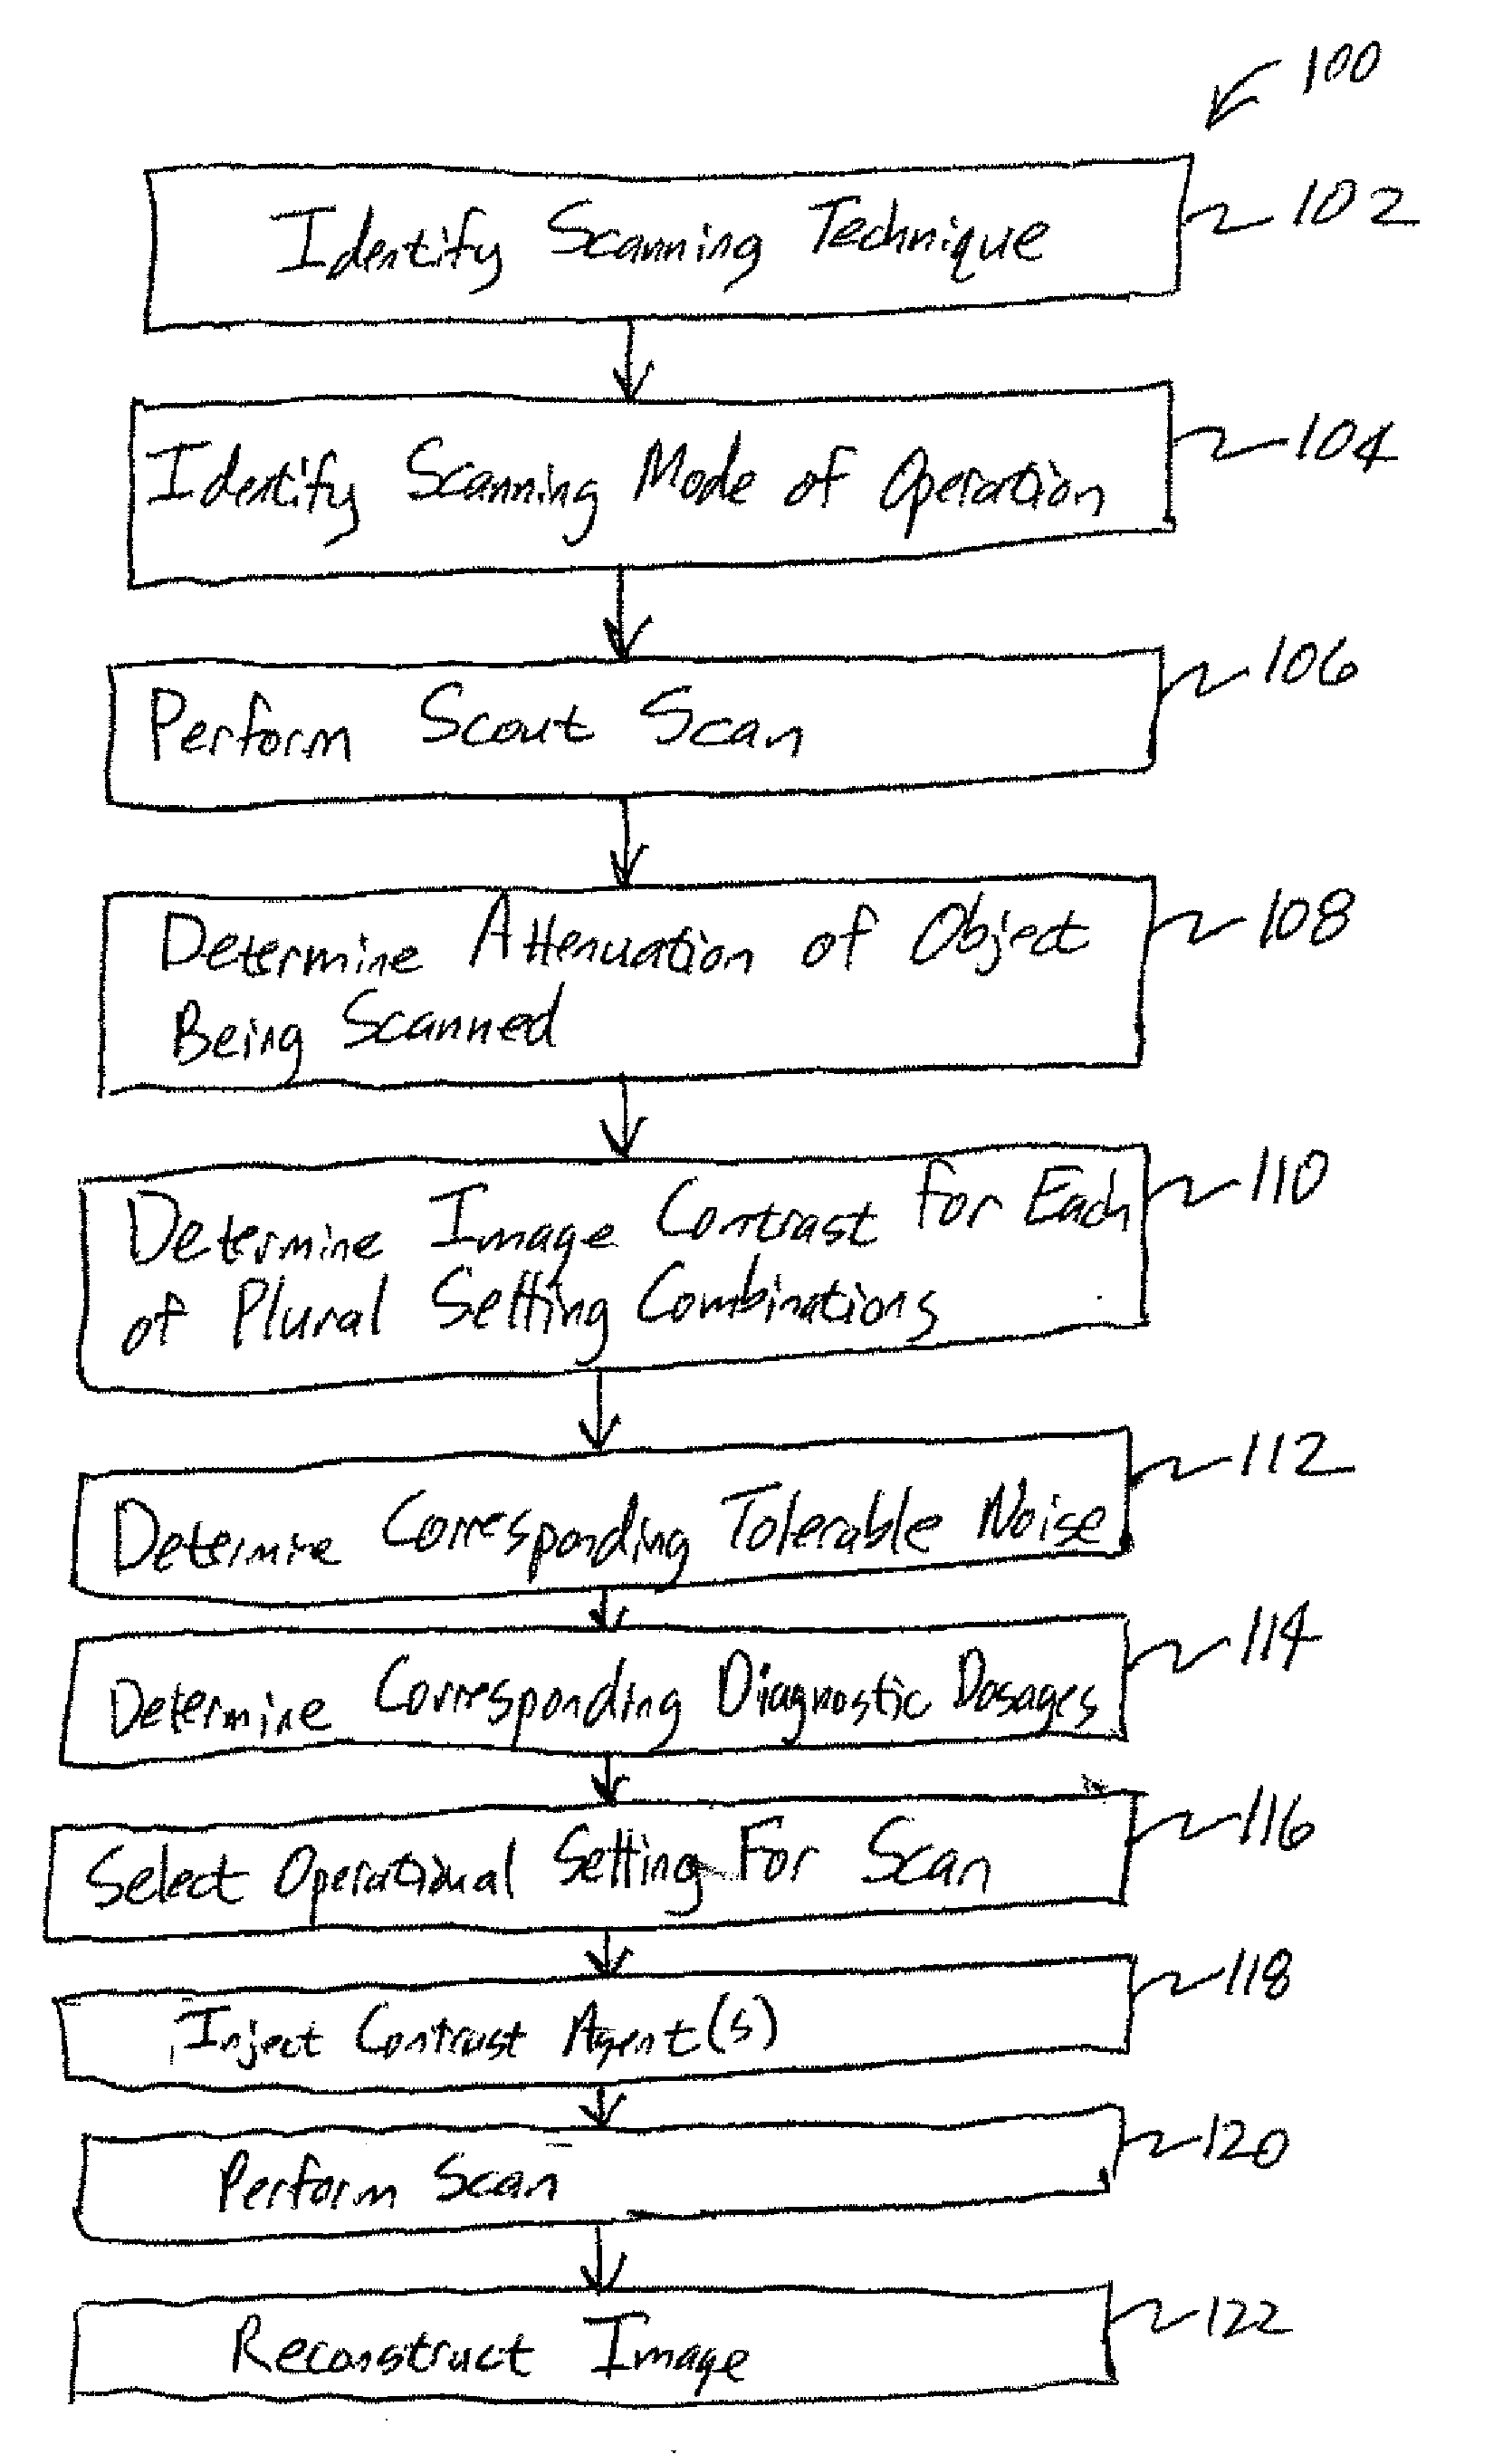 100
Identify Scanning Technique 102
Identify Scanning Mode of Operation 104
Perform Scout Scan 106
Determine Attenuation of Object 108
Being Scanned
Determine Image Contrast For Each 110
of Plural Setting Combinations
Determine Corresponding Tolerable Noise 112
Determine Corresponding Diagnostic Dosages 114
Select Operational Setting For Scan 116
Inject Contrast Agent(s) 118
Perform Scan 120
Reconstruct Image 122